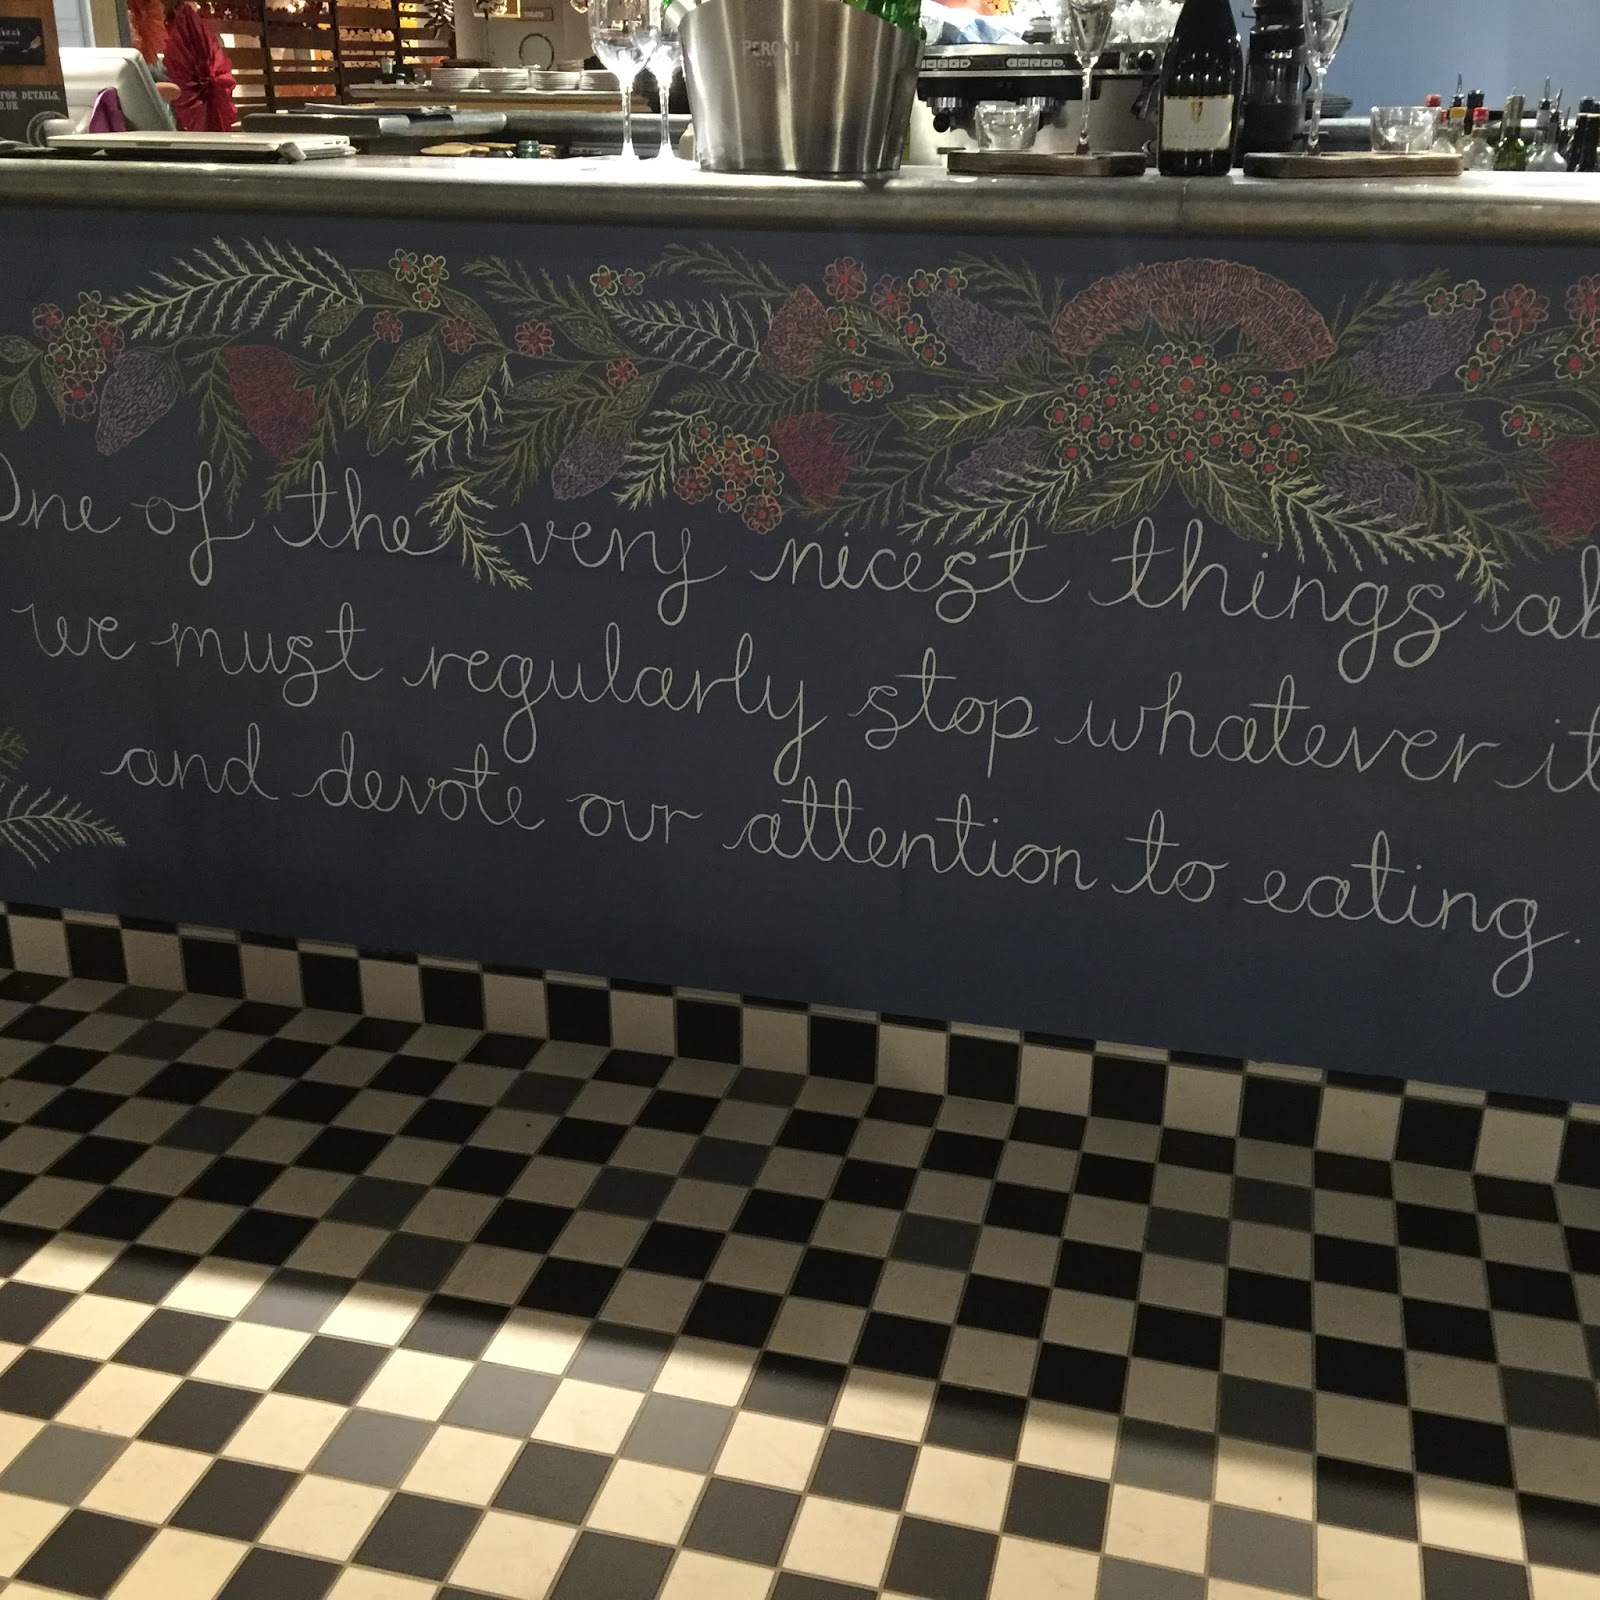 PERONI
ITALY
FOR DETAILS,
One of the very nicest things ab
we must regularly stop whatever it
and devote our attention to eating.